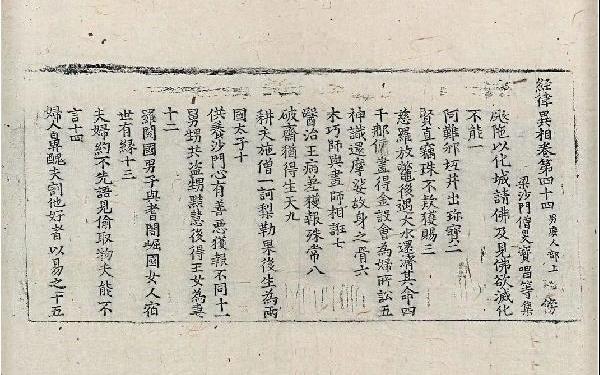 經律異相卷第四十四 男庶人部上
梁沙門僧旻寶唱等集
颰陁以化城請佛及見佛欲滅化
不能一
何難邠坻井出珎寳二
賢直竊珠不欬獲賜三
慈羅放鼈後遇大水還濟其命四
千那儒畫得金設會為婦所訟五
神識還摩娑故身之骨六
木巧師與畫師相誑七
醫治王病差獲報殊常八
破齋猶得生天九
耕夫施僧一訶梨勒果後生為兩
國太子十
供養沙門心有善惡獲報不同十一
舅甥共盜甥黠慧後得王女為妻
十二
羅閱國男子與耆闍崛國女人宿
世有緣十三
夫婦約不先語見偷取物夫能不
言十四
婦人鼻醜夫割他好者以易之十五